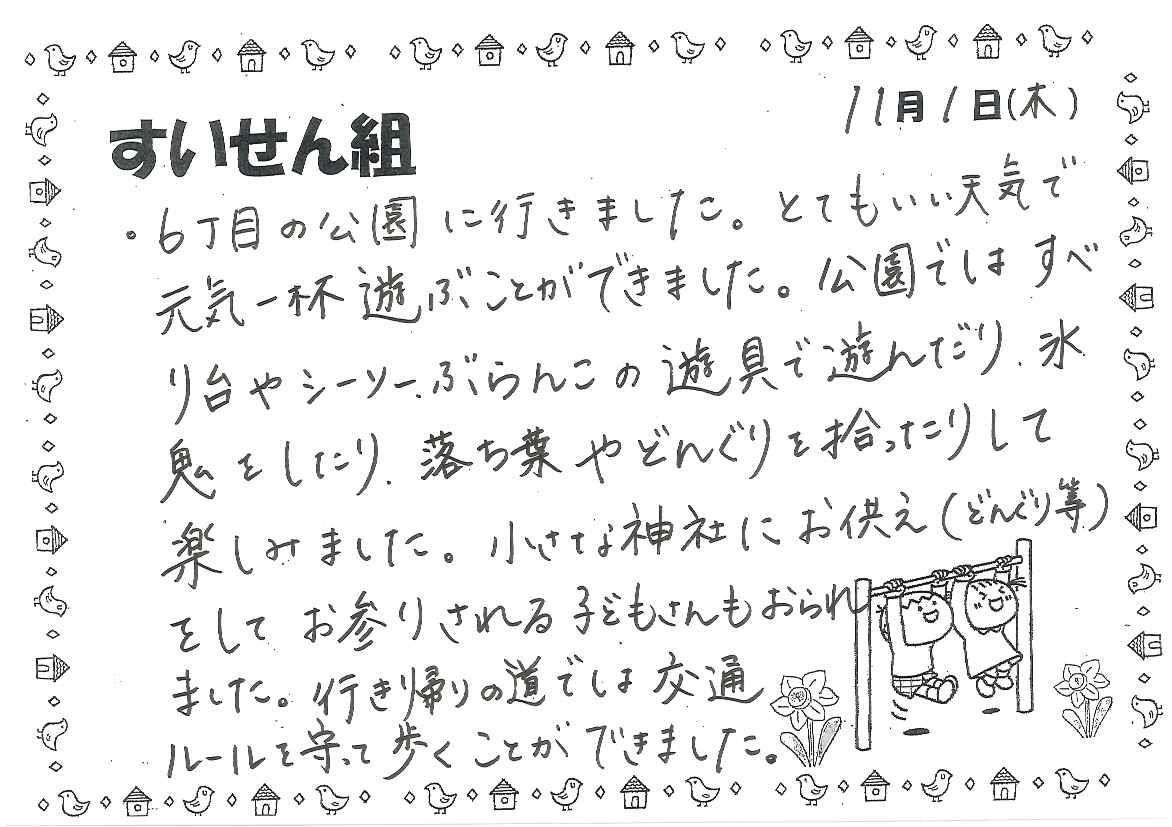 11月1日(木)
すいせん組
・6丁目の公園に行きました。とてもいい天気で
元気一杯遊ぶことができました。公園ではすべ
り台やシーソー、ぶらんこの遊具で遊んだり、氷
鬼をしたり、落ち葉やどんぐりを拾ったりして
楽しみました。小さな神社にお供え(どんぐり等)
をしてお参りされる子どもさんもおられ
ました。行き帰りの道では交通
ルールを守って歩くことができました。